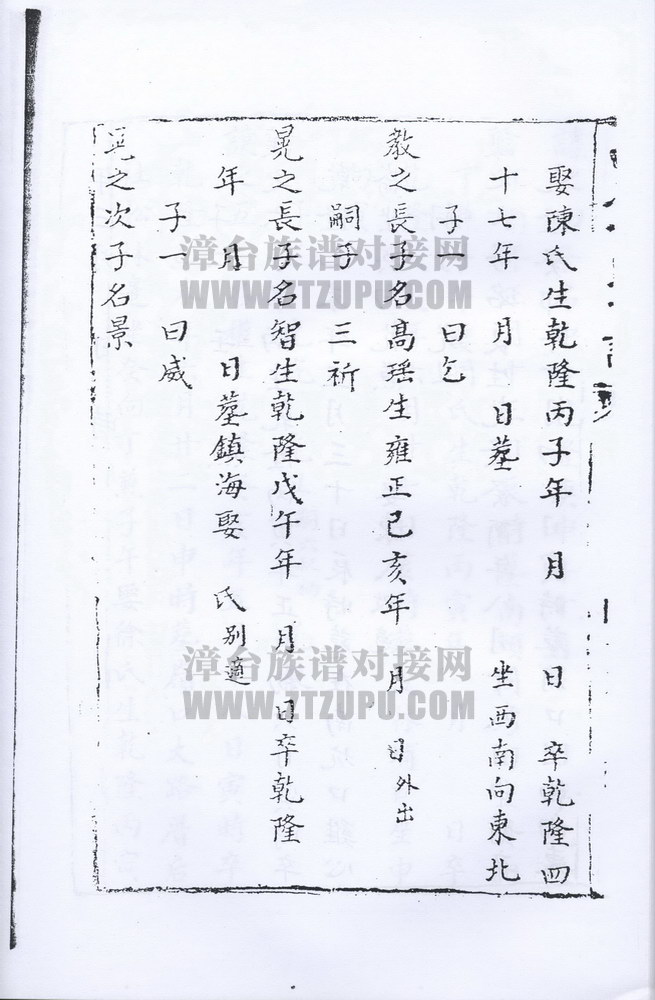 娶陳氏生乾隆丙子年 月 日 卒乾隆四
十七年 月 日墓 坐西南向東北
子一 曰乞
教之長子名高瑶生雍正己亥年 月 日外出
嗣子 三祈
晃之長子名智生乾隆戊午年 月 日卒乾隆
年 月 日墓鎮海娶 氏别適
子一 曰威
晃之次子名景
漳台族谱对接网
WWW.ZTZUPU.COM
漳台族谱对接网
WWW.ZTZUPU.COM